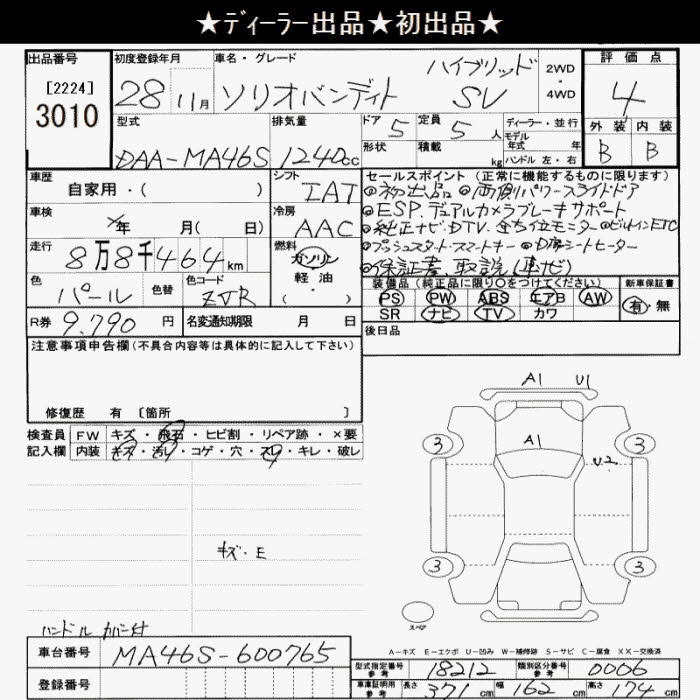 ★ディーラー出品★初出品★
出品番号
[2224]
3010
初度登録年月
28 11月
車名・グレード
ソリオバンディト
ハイブリッド
SV
2WD
・
4WD
評価点
4
外装 内装
B B
型式
DAA-MA46S
排気量
1240cc
ドア 5
定員 5 人
形状
積載 kg
ディーラー・並行
モデル
年式 年
ハンドル 左・右
車歴
自家用・( )
シフト
IAT
セールスポイント (正常に機能するものに限ります)
◎初出品 ◎両側パワースライドドア
◎ESP.デュアルカメラブレーキサポート
◎純正ナビ.DTV.全方位モニター◎ビルトインETC
◎プッシュスタートスマートキー ◎D席シートヒーター
◎保証書.取説(車ナビ)
車検
年 月( 日)
冷房
AAC
走行
8万8千464km
燃料
ガソリン
軽油
・
( )
色
パール
色替
色コード
ZJR
装備品 (純正品に限り〇をつけてください)
PS PW ABS エアB AW
SR ナビ TV カワ
新車保証書
有・無
R券 9.790 円
名変通知期限 月 日
後日品
注意事項申告欄(不具合内容等は具体的に記入して下さい)
修復歴 有 〔箇所 〕
検査員
記入欄
FW キズ・飛石・ヒビ割・リペア跡・×要
内装 キズ・汚れ・コゲ・穴・スレ・キレ・破レ
キズ・E
ハンドル カバー付
A1 U1
A1
U2
3 3
3 3
スペア
A-キズ E-エクボ U-凹み W-補修跡 S-サビ C-腐食 XX-交換済
車台番号 MA46S-600765
登録番号
型式指定番号
参考
18212
類別区分番号
参考
0006
車庫証明用
参考
長さ 371 cm
幅 162 cm
高さ 174 cm